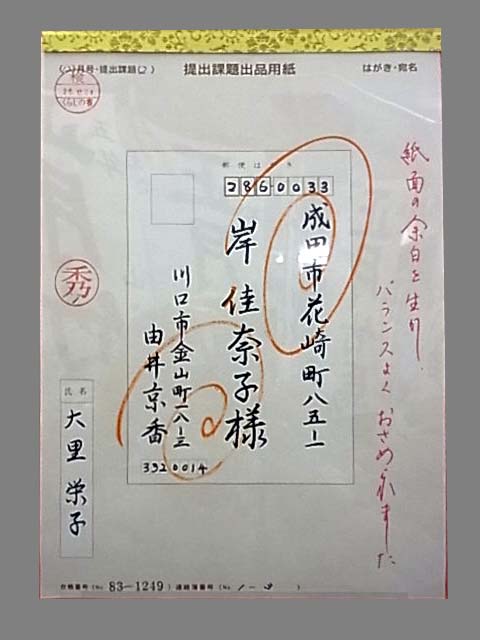 (12月号・提出課題(2)
提出課題出品用紙
はがき・宛名
検
くらしの書
紙面の余白を生かし、
バランスよく おさめられました
郵便はがき
2860033
成田市花崎町八五ー一
岸 佳奈子様
川口市金山町一八ー三
由井京香
3320014
秀
氏名
大里 栄子
合格番号(No. 83-1249) 連絡簿番号(No. 1-3)